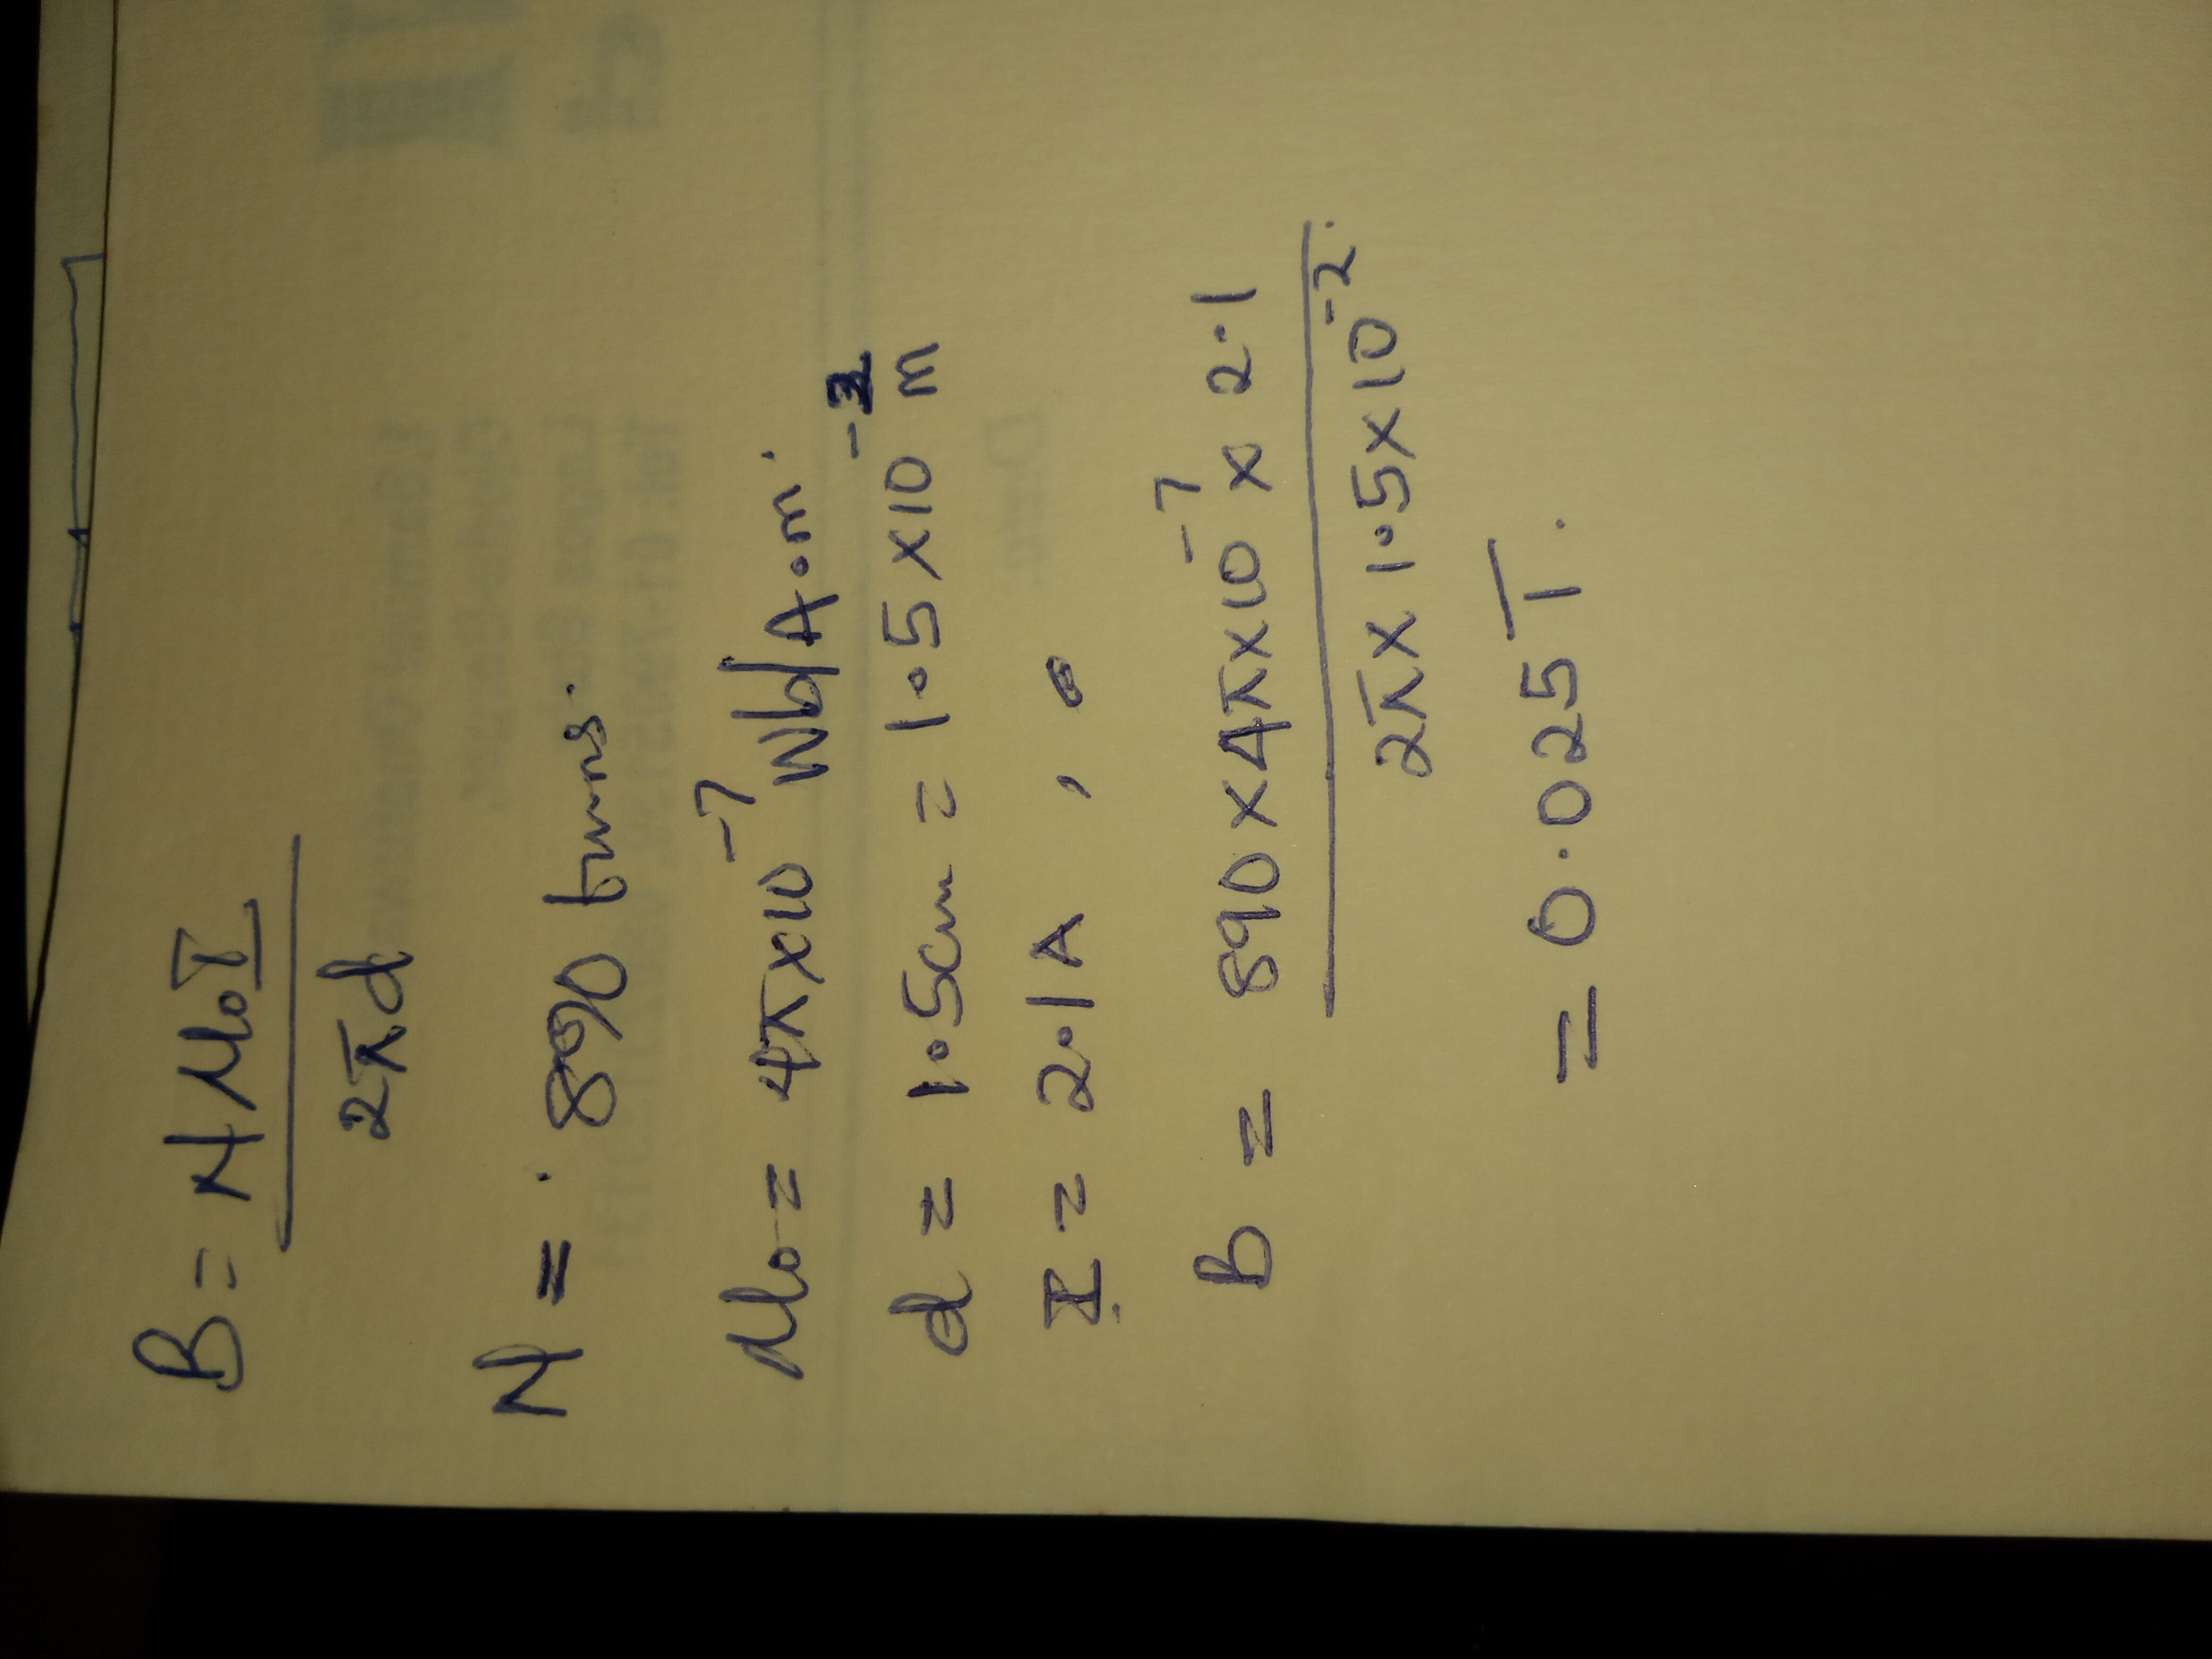 B = NμoI
2πd
N = 890 turns.
μo = 4π×10⁻⁷ Wb/A.m.
d = 1.5cm = 1.5×10⁻² m
I = 2.1A , 0
B = 890×4π×10⁻⁷ × 2.1
2π × 1.5×10⁻².
= 0.025T.